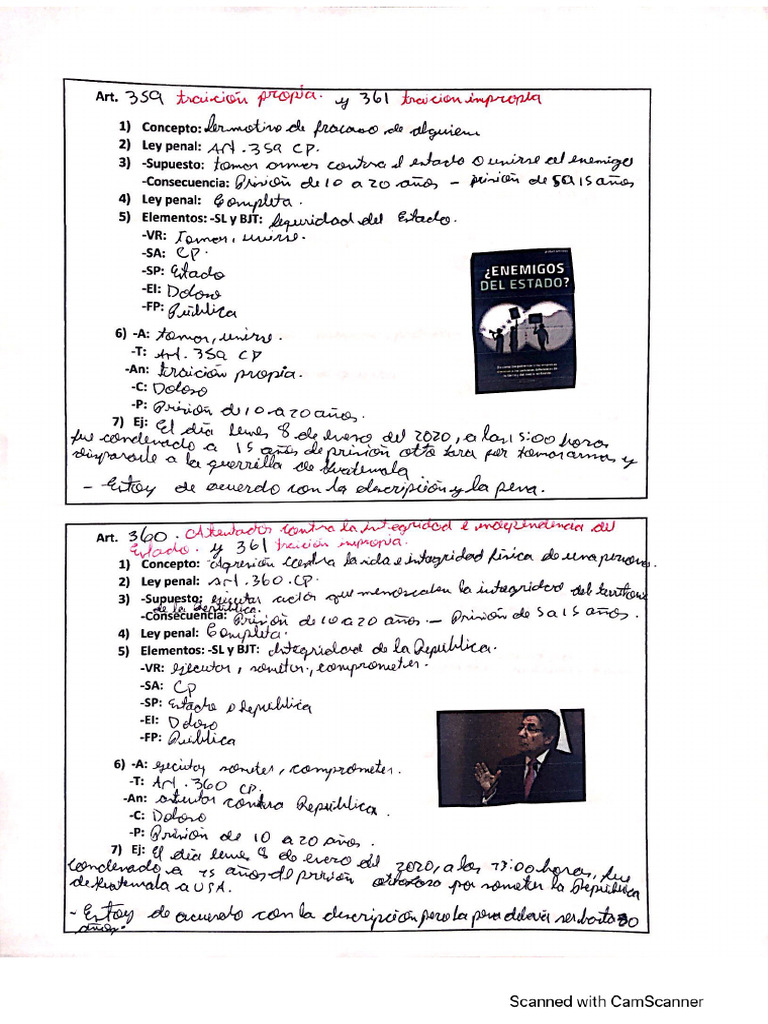 Art. 359 traición propia. y 361 traicion impropia
1) Concepto: Ser motivo de fracaso de alguien
2) Ley penal: Art. 359 CP.
3) -Supuesto: tomar armas contra el estado o unirse al enemigo
-Consecuencia: Prisión de 10 a 20 años - prisión de 5 a 15 años
4) Ley penal: Completa.
5) Elementos: -SL y BJT: Seguridad del Estado.
-VR: tomar, unirse.
-SA: CP.
-SP: Estado
-EI: Doloso
-FP: Pública
¿ENEMIGOS
DEL ESTADO?
6) -A: tomar, unirse.
-T: Art. 359 CP
-An: traición propia.
-C: Doloso
-P: Prisión de 10 a 20 años.
7) Ej: El día lunes 8 de enero del 2020, a las 15:00 horas
fue condenado a 15 años de prisión por tomar armas y
a la guerrilla de Guatemala
- Estoy de acuerdo con la descripción y la pena.
Art. 360. Atentados contra la integridad e independencia del
Estado. y 361 traición impropia.
1) Concepto: Agresión contra la vida e integridad física de una persona.
2) Ley penal: Art. 360. CP.
3) -Supuesto: ejecutar actos que menoscaben la integridad del territorio
de la República.
-Consecuencia: Prisión de 10 a 20 años - Prisión de 5 a 15 años.
4) Ley penal: Completa.
5) Elementos: -SL y BJT: Integridad de la República.
-VR: ejecutar, someter, comprometer.
-SA: CP
-SP: Estado o República
-EI: Doloso
-FP: Pública
6) -A: ejecutar, someter, comprometer.
-T: Art. 360 CP.
-An: contra República.
-C: Doloso
-P: Prisión de 10 a 20 años.
7) Ej: El día lunes 8 de enero del 2020, a las horas, fue
condenado a 15 años de prisión por someter la República
de Guatemala a USA.
- Estoy de acuerdo con la descripción pero la pena debería ser hasta 30
años.
Scanned with CamScanner